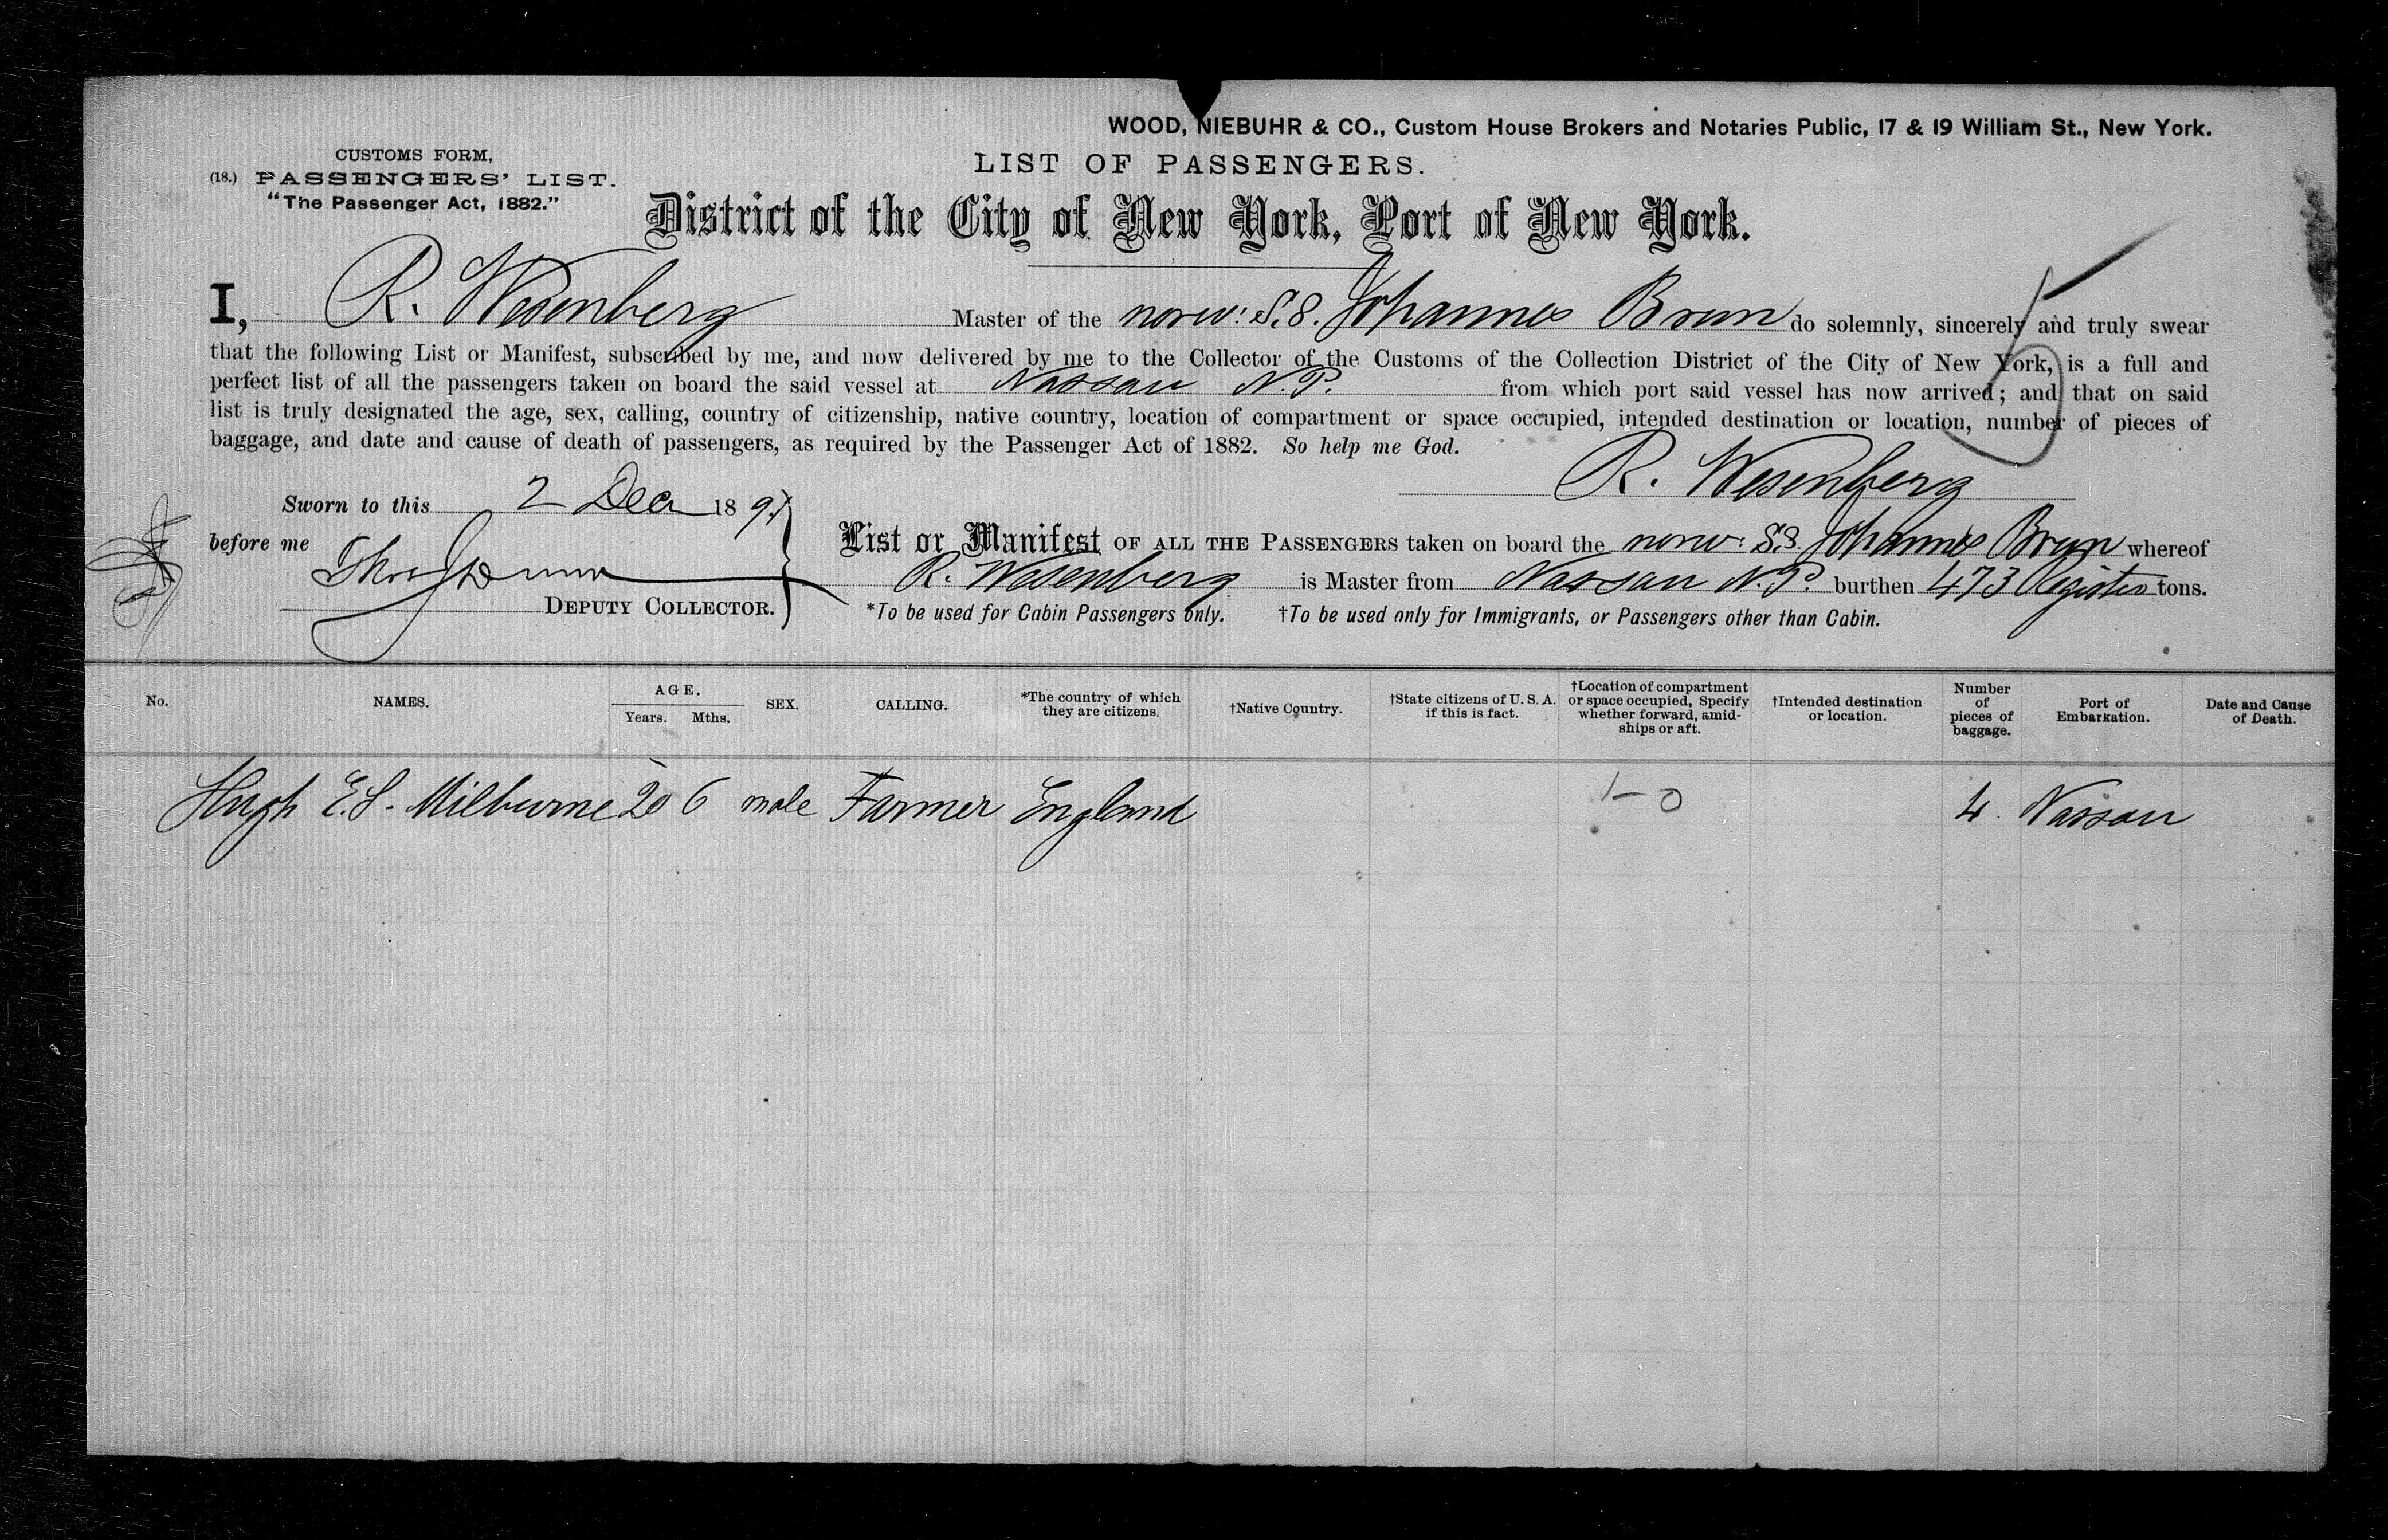 WOOD, NIEBUHR & CO., Custom House Brokers and Notaries Public, 17 & 19 William St., New York.
CUSTOMS FORM,
(18.) PASSENGERS' LIST.
"The Passenger Act, 1882."
LIST OF PASSENGERS.
District of the City of New York, Port of New York.
5
I, R. Wesenberg Master of the norw: S.S. Johannes Brun do solemnly, sincerely and truly swear
that the following List or Manifest, subscribed by me, and now delivered by me to the Collector of the Customs of the Collection District of the City of New York, is a full and
perfect list of all the passengers taken on board the said vessel at Nassau N.P. from which port said vessel has now arrived; and that on said
list is truly designated the age, sex, calling, country of citizenship, native country, location of compartment or space occupied, intended destination or location, number of pieces of
baggage, and date and cause of death of passengers, as required by the Passenger Act of 1882. So help me God.
R. Wesenberg
Sworn to this 2 Dec 1891
before me
DEPUTY COLLECTOR.
List or Manifest OF ALL THE PASSENGERS taken on board the norw: S.S. Johannes Brun whereof
R. Wesenberg is Master from Nassau N.P. burthen 473 Register tons.
*To be used for Cabin Passengers only. †To be used only for Immigrants, or Passengers other than Cabin.
No. NAMES. AGE. Years. Mths. SEX. CALLING. *The country of which they are citizens. †Native Country. †State citizens of U.S.A. if this is fact. †Location of compartment or space occupied, Specify whether forward, amid-ships or aft. †Intended destination or location. Number of pieces of baggage. Port of Embarkation. Date and Cause of Death.
Hugh E.S. Milburne 20 6 male Farmer England 1-0 4 Nassau